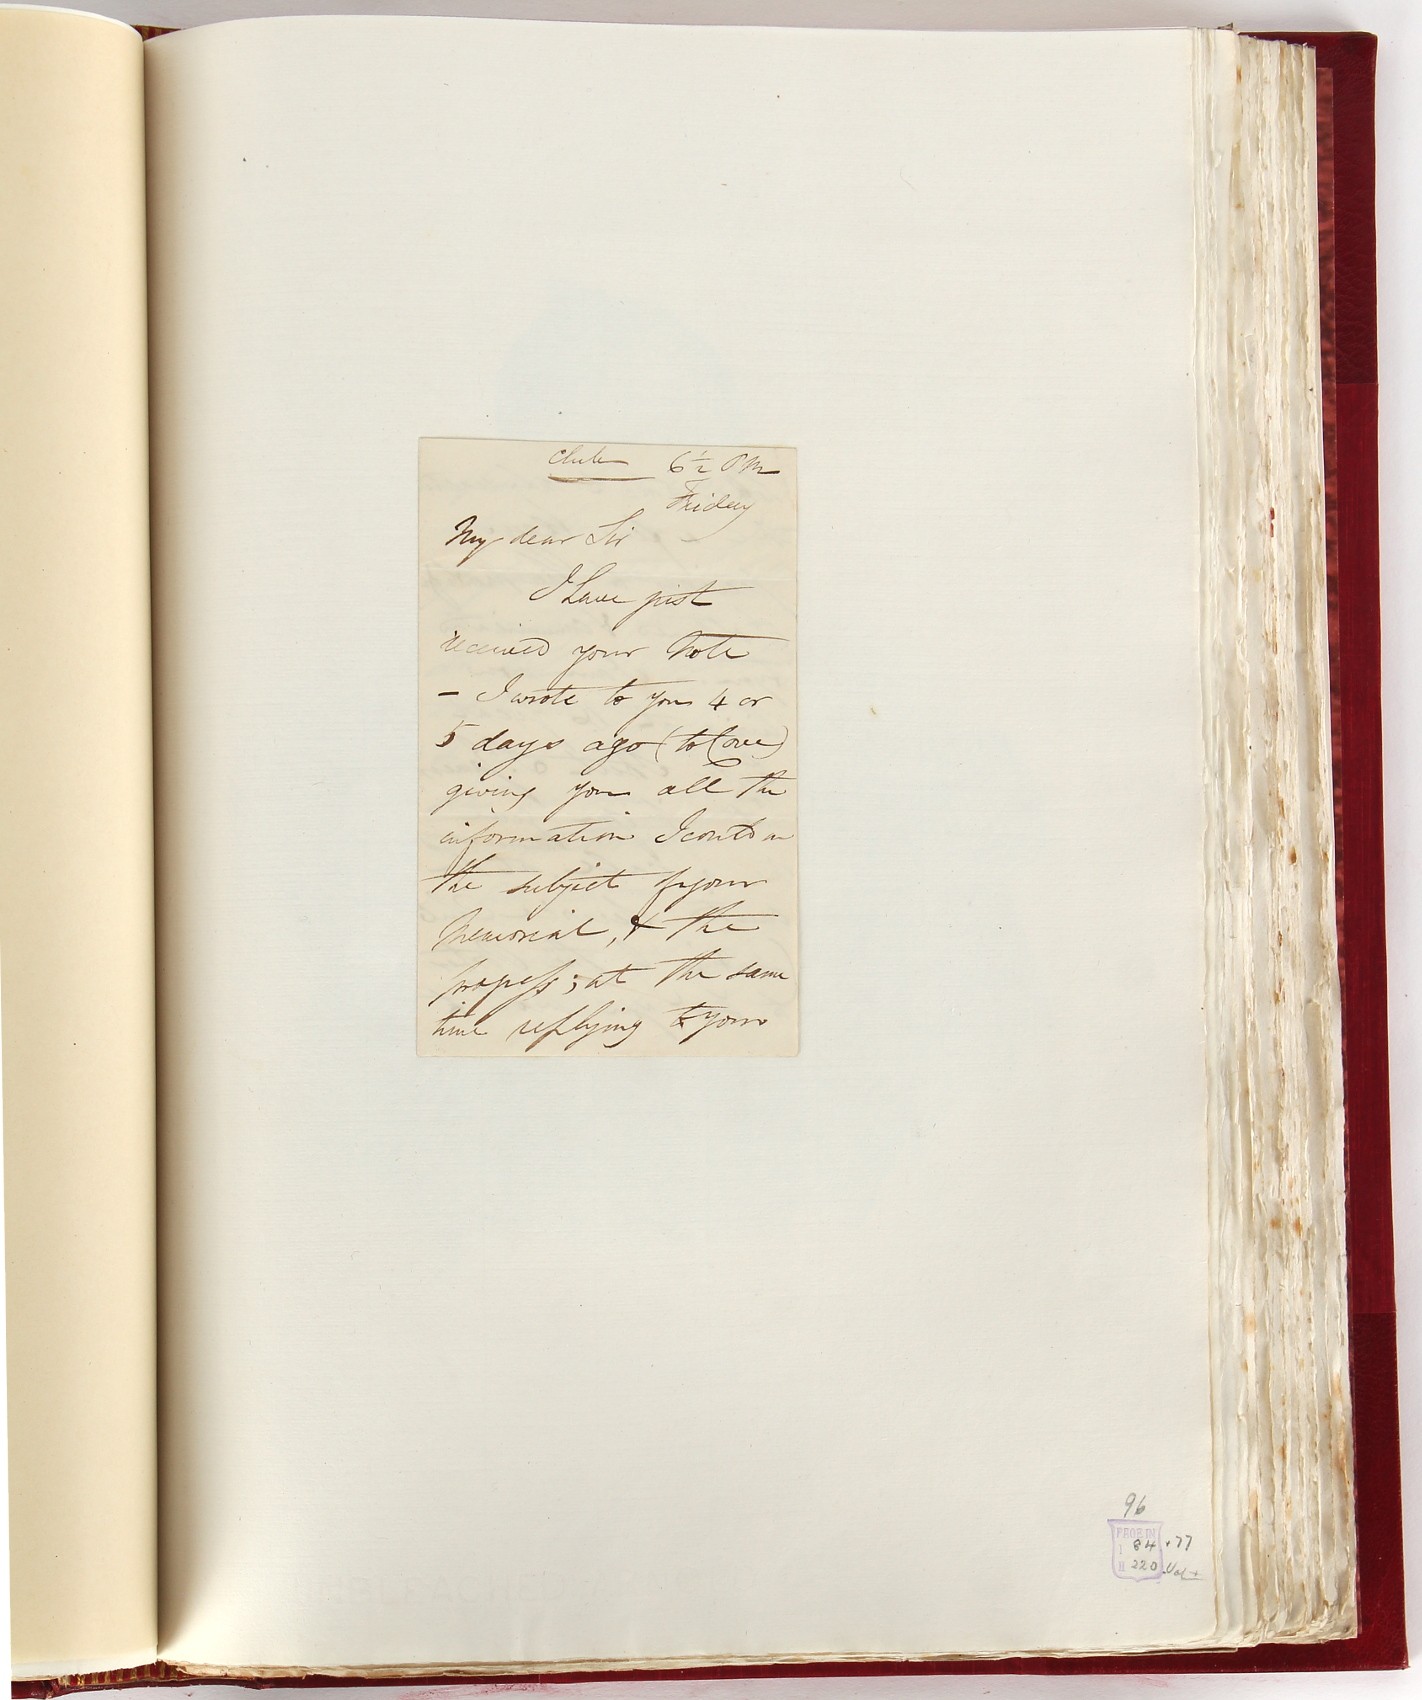 Club 6½ PM
Friday
My dear Sir
I have just
received your note
- I wrote to you 4 or
5 days ago (to Cove)
giving you all the
information I could on
the subject of your
Memorial, & the
progress; at the same
time replying to your
96
84 . 77
220